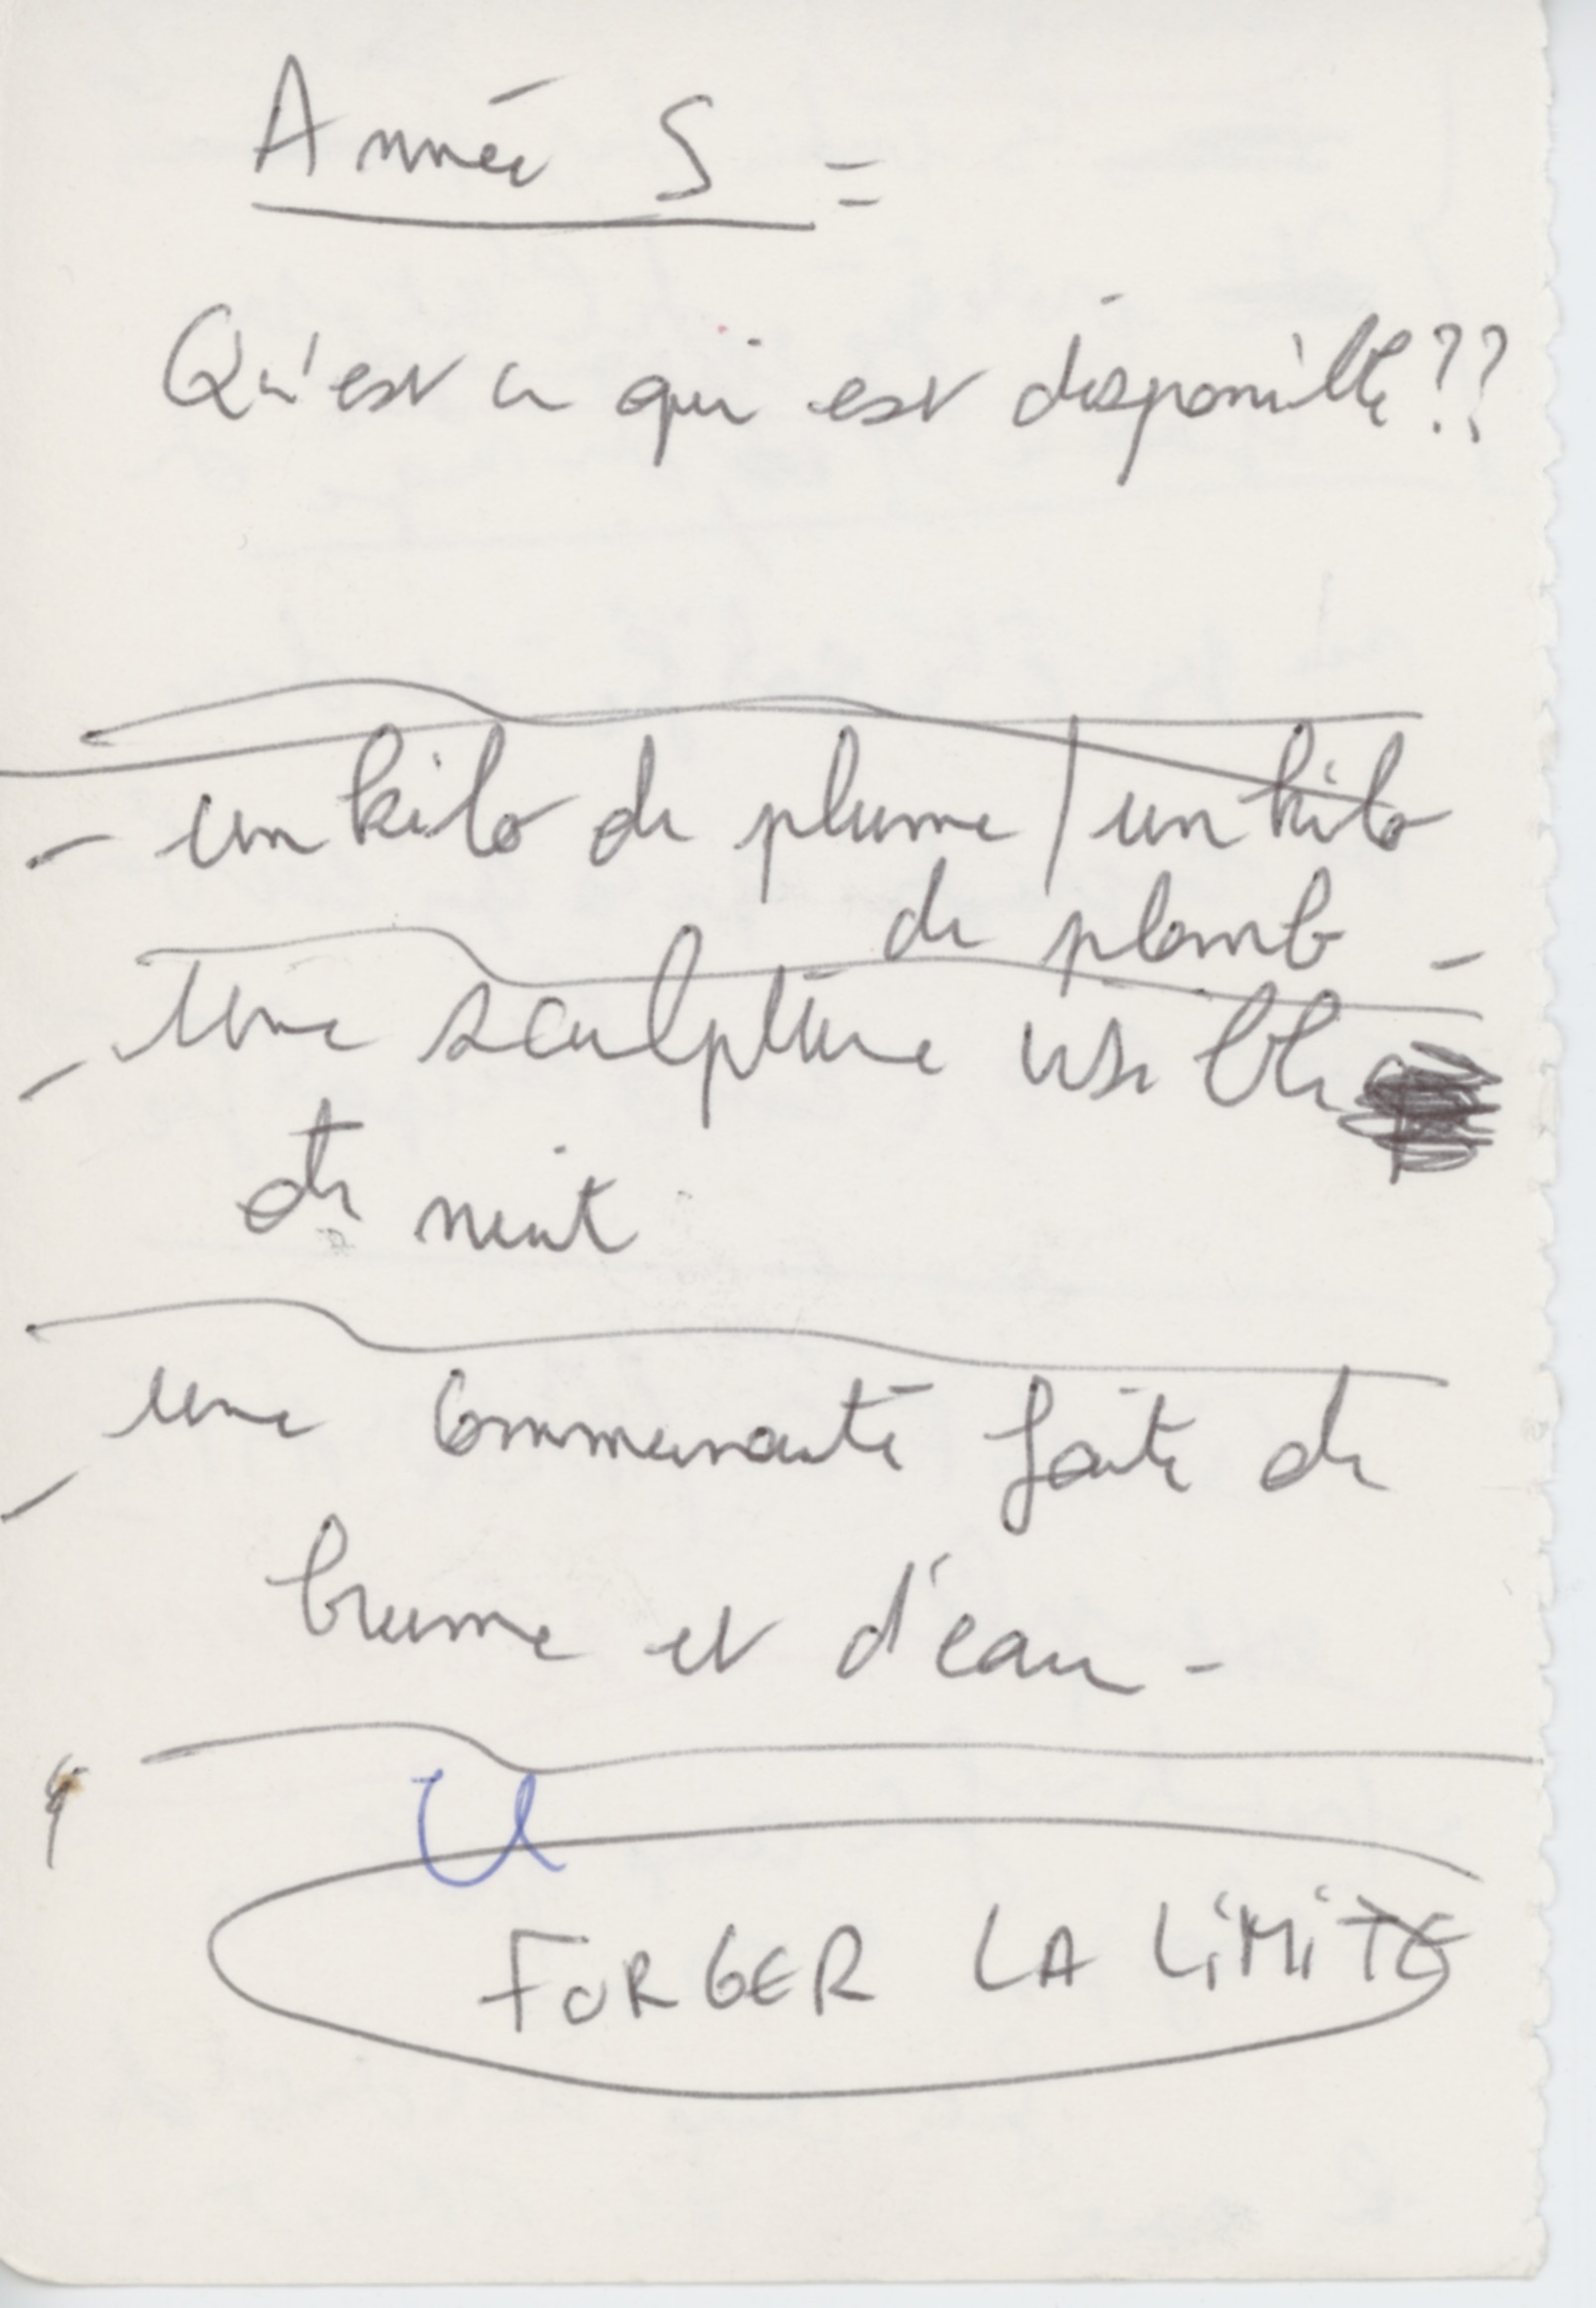 Année S =
Qu'est ce qui est disponible ??
- un kilo de plume / un kilo
de plomb -
- une sculpture visible
de nuit
- une communauté faite de
brume et d'eau -
U
FORGER LA LiMiTE